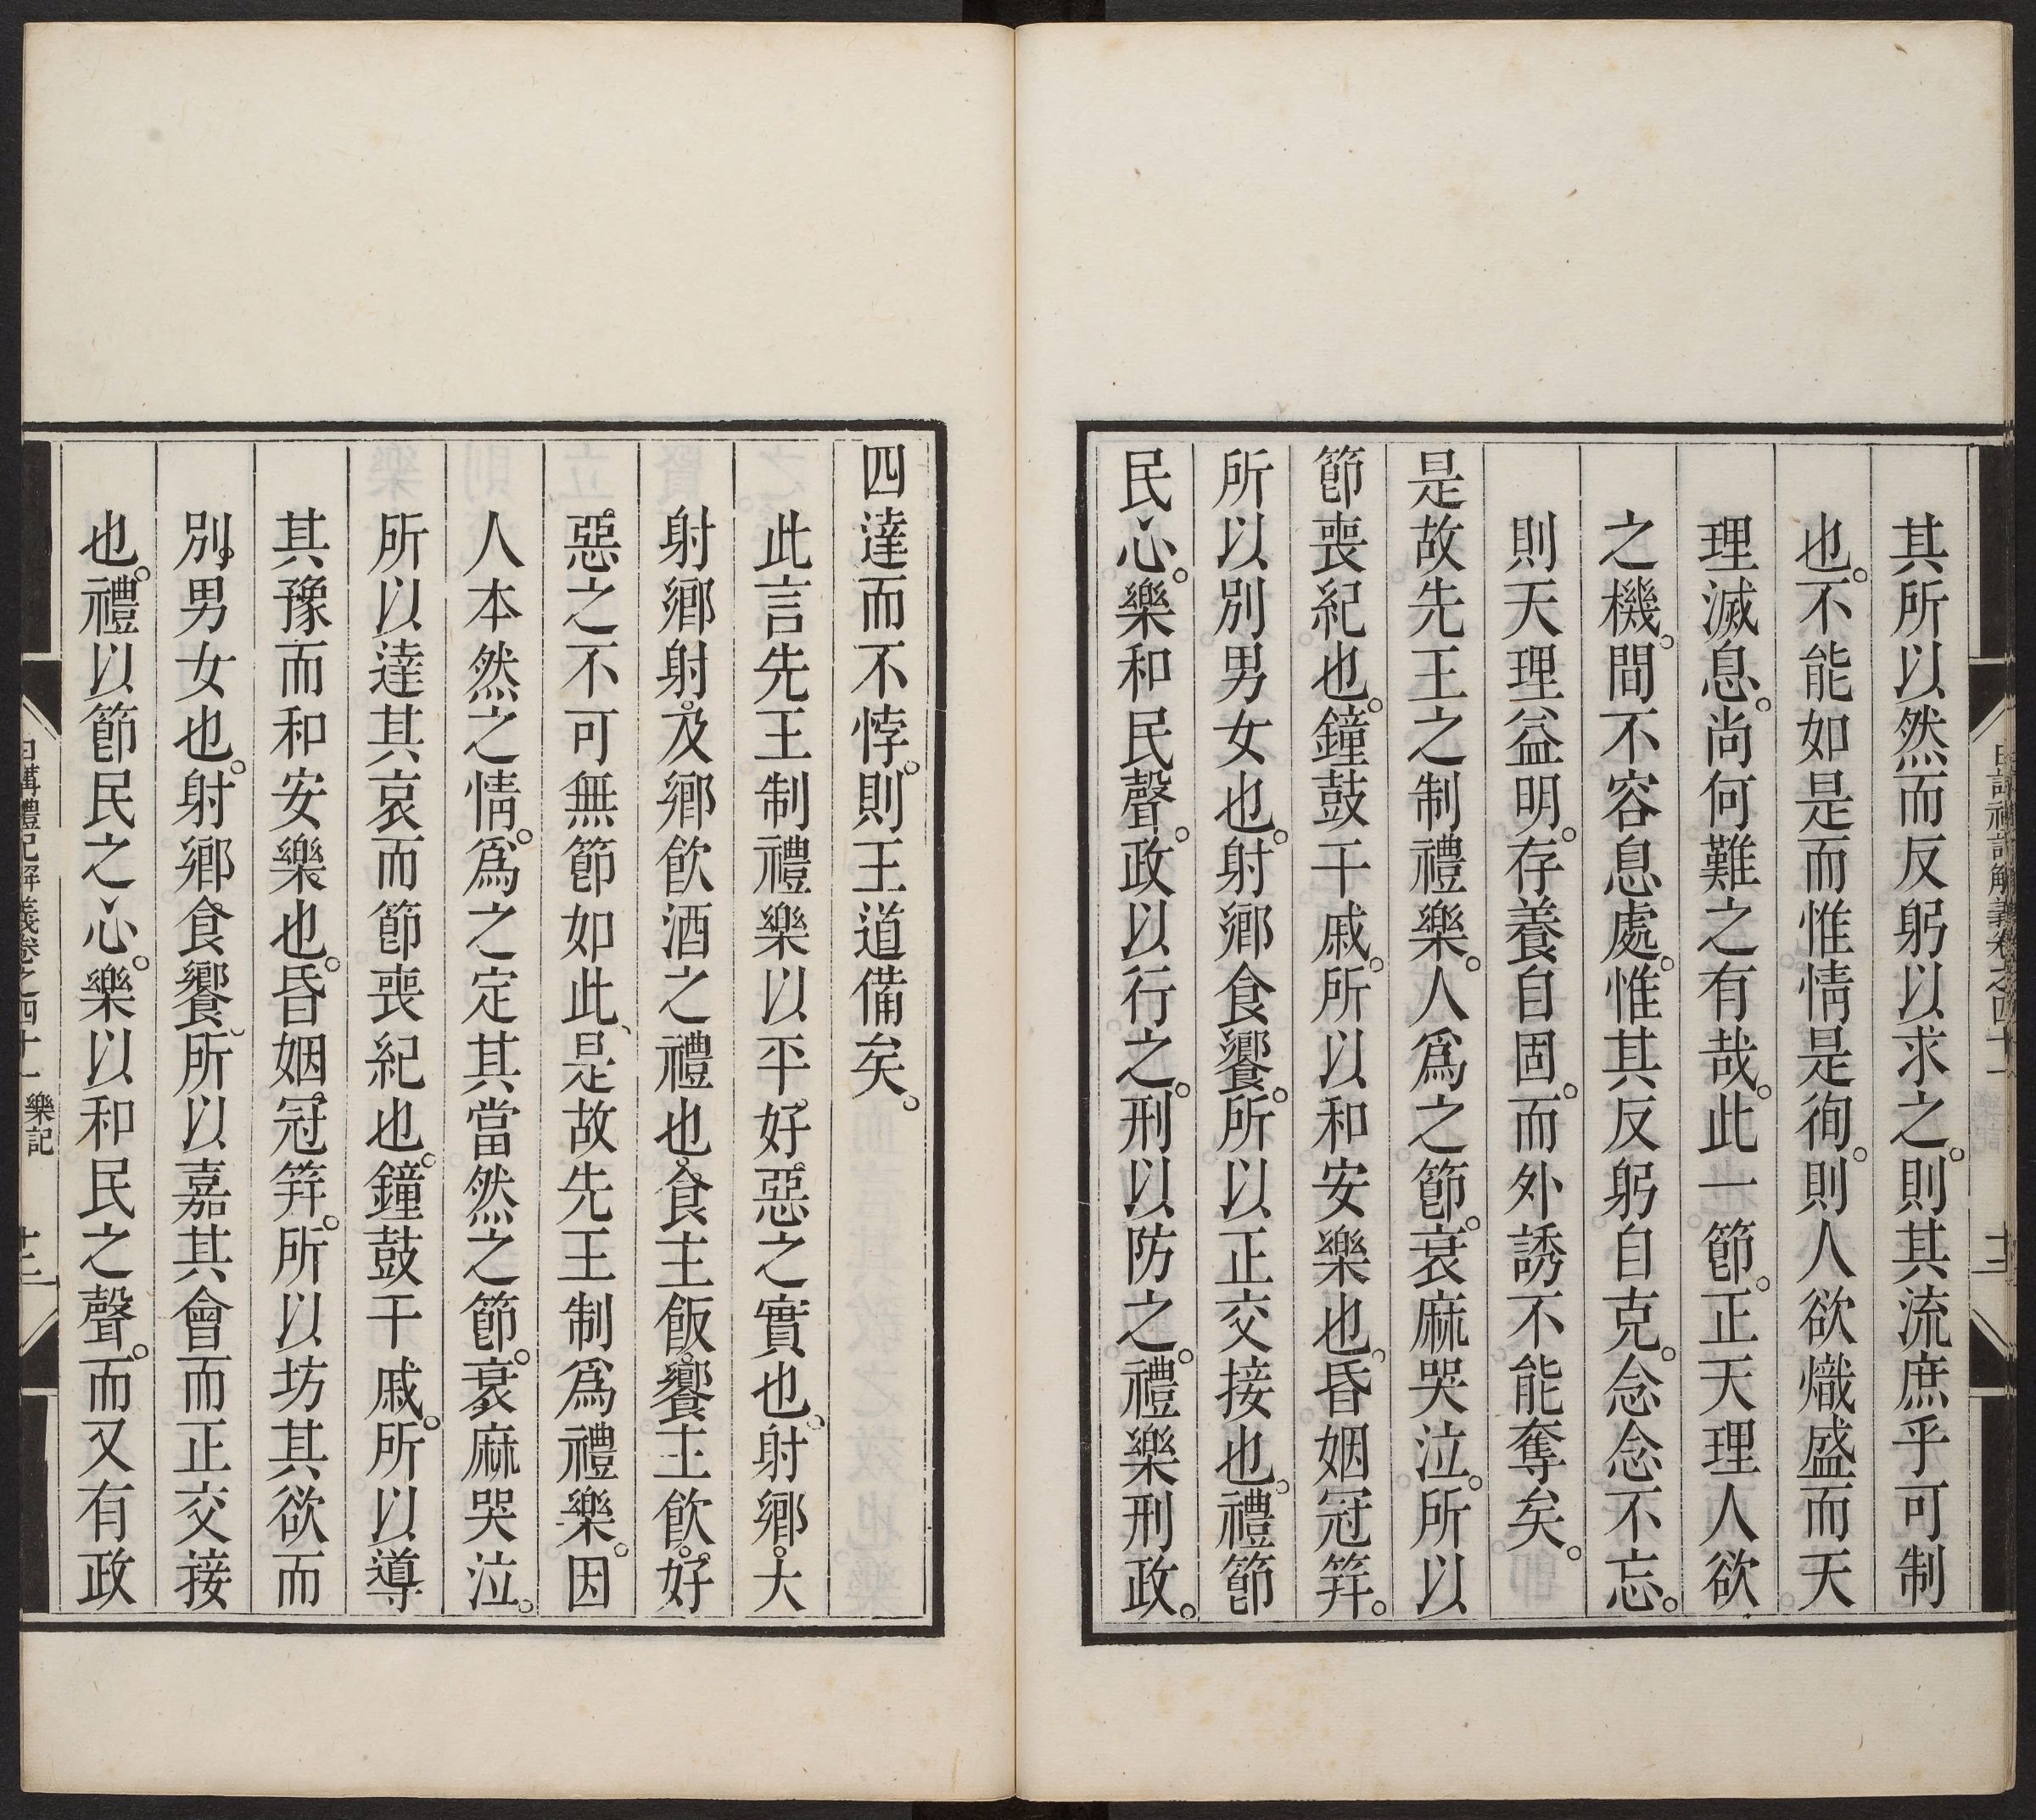 其所以然而反躬以求之。則其流庶乎可制
也。不能如是而惟情是徇。則人欲熾盛而天
理滅息。尚何難之有哉。此一節。正天理人欲
之機。間不容息處。惟其反躬自克。念念不忘。
則天理益明。存養自固。而外誘不能奪矣。
是故先王之制禮樂。人爲之節。衰麻哭泣。所以
節喪紀也。鐘鼓干戚。所以和安樂也。昏姻冠筓。
所以別男女也。射鄉食饗。所以正交接也。禮節
民心。樂和民聲。政以行之。刑以防之。禮樂刑政。
四達而不悖。則王道備矣。
此言先王制禮樂以平好惡之實也。射鄉。大
射鄉射。及鄉飲酒之禮也。食主飯。饗主飲。好
惡之不可無節如此、是故先王制爲禮樂。因
人本然之情。爲之定其當然之節。衰麻哭泣。
所以達其哀而節喪紀也。鐘鼓干戚。所以導
其豫而和安樂也。昏姻。冠筓。所以坊其欲而
別男女也。射鄉。食饗。所以嘉其會而正交接
也。禮以節民之心。樂以和民之聲。而又有政
日講禮記解義卷之四十一 樂記 十三